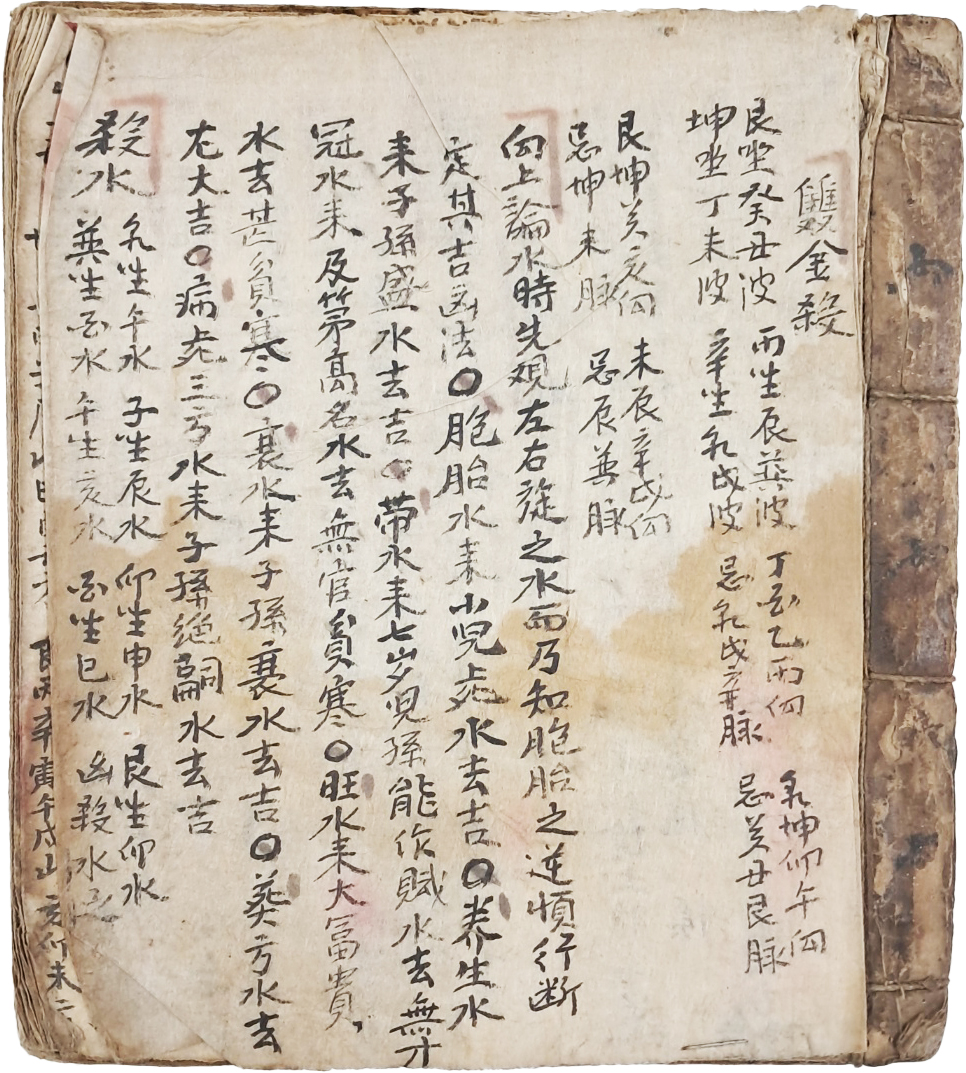 雙金殺
艮坐癸丑波 丙坐辰巽波 丁 乙丙向 乾坤卯午向
坤坐丁未波 辛坐乾戌波 忌乾戌亥脉 忌癸丑艮脉
艮坤癸亥向 未辰辛戌向
忌坤未脉 忌辰巽脉
向上論水時先觀左右旋之水而乃知胞胎之逆順行断
定其吉凶法〇胞胎水耒小児死水去吉〇养生水
耒子孫盛水去吉〇帶水耒七岁児孫能作賦水去無才
冠水耒及第高名水去無官貧寒〇旺水耒大冨貴
水去甚貧寒〇衰水耒子孫衰水去吉〇葬亏水去
左大吉〇病死三亏水耒子孫絶嗣水去吉
殺水 乾坐午水 子坐辰水 卯坐申水 艮坐卯水
巽坐酉水 午坐亥水 酉坐巳水 凶殺水
艮丙辛寅午戌山 亥卯未